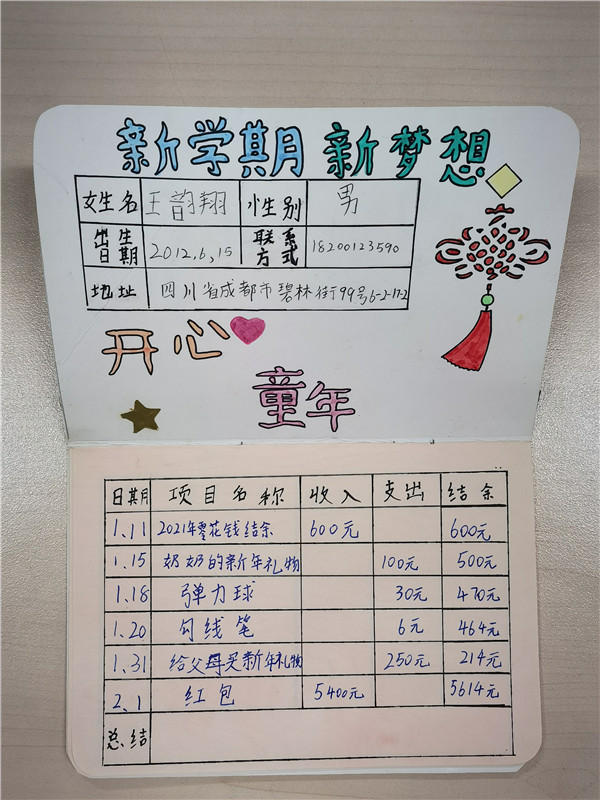 新学期 新梦想
姓名 王韵翔 性别 男
出生日期 2012.6.15 联系方式 18200123590
地址 四川省成都市碧林街99号6-2-17-2
开心
童年
日期 项目名称 收入 支出 结余
1.11 2021年零花钱结余 600元 600元
1.15 奶奶的新年礼物 100元 500元
1.18 弹力球 30元 470元
1.20 勾线笔 6元 464元
1.31 给父母买新年礼物 250元 214元
2.1 红包 5400元 5614元
总结